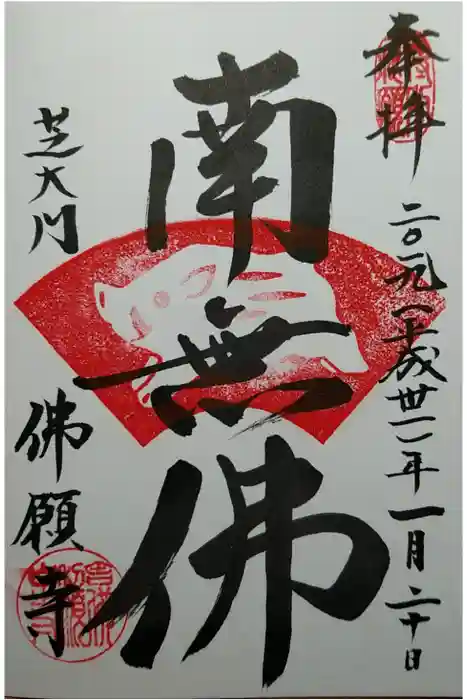 奉拝
二〇一九平成卅一年一月二十日
南無佛
芝大川
佛願寺